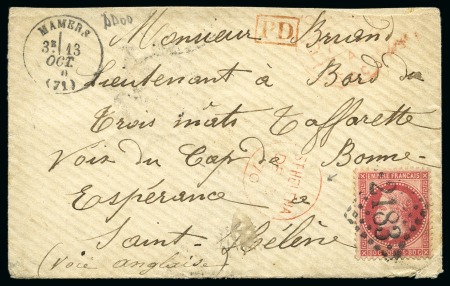 MAMERS
3E 13
OCT
(71)
P.D.
Monsieur Briand
Lieutenant à Bord du
Trois mâts Taffarette
Voie du Cap de Bonne-
Espérance
Saint-Hélène
(Voie anglaise)
ST HELENA
EMPIRE FRANÇAIS
2183